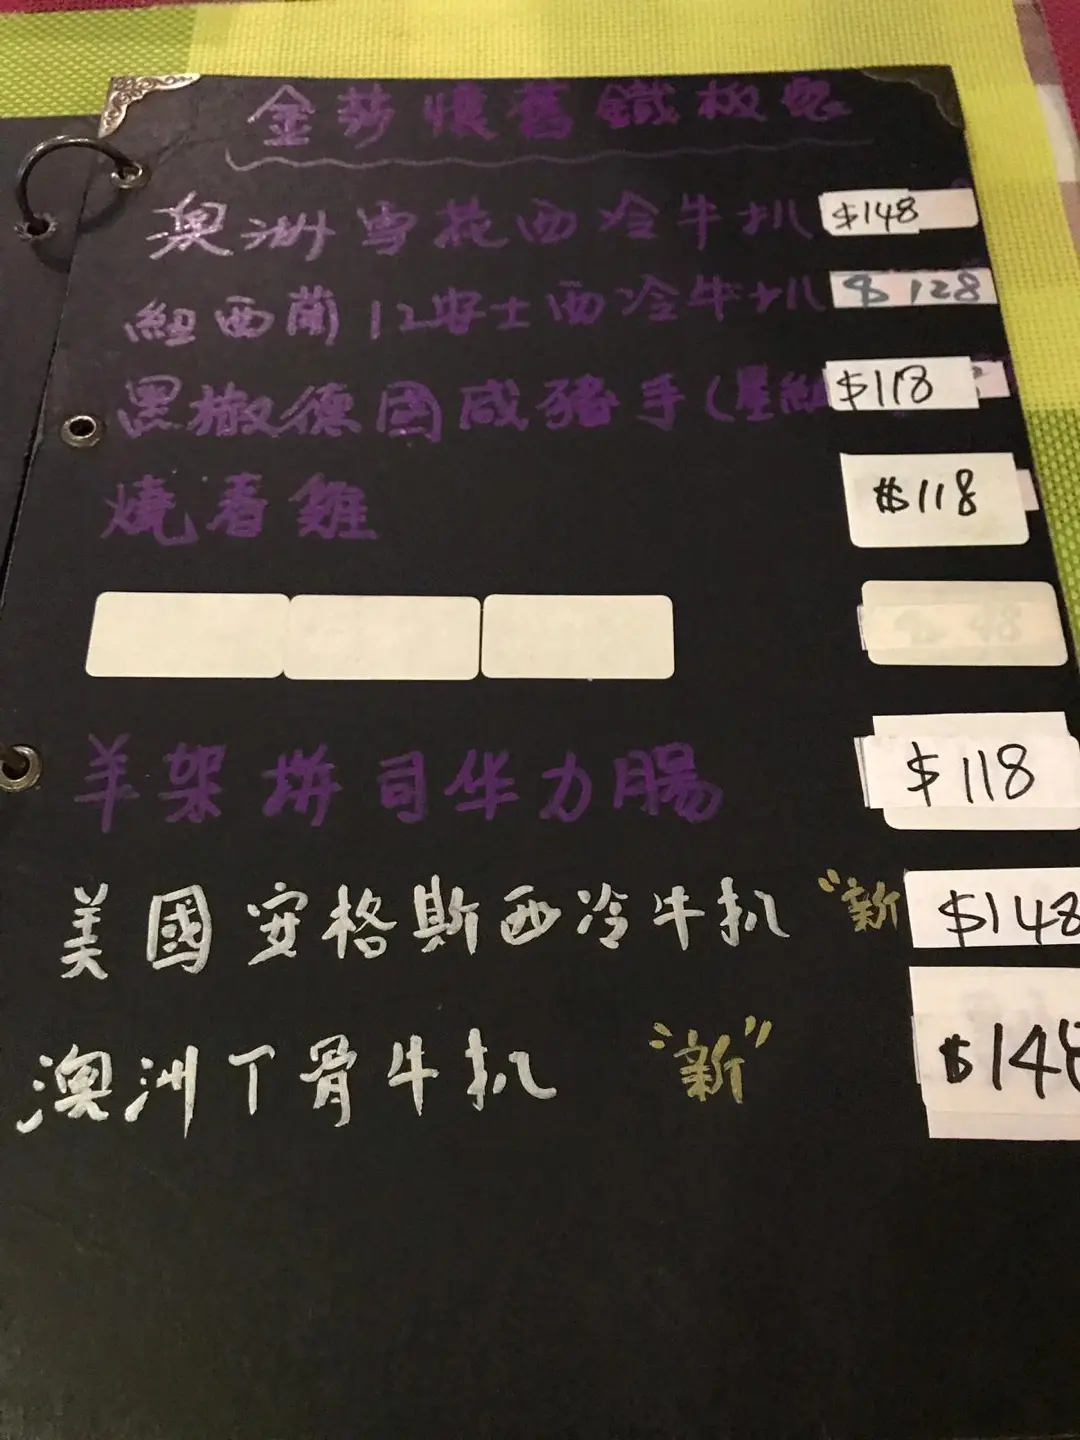 金莎懷舊鐵板餐
澳洲雪花西冷牛扒 $148
紐西蘭12安士西冷牛扒 $128
黑撒德國咸豬手( $118
燒春雞 $118
羊架拼司华力腸 $118
美國安格斯西冷牛扒 "新 $148
澳洲丁骨牛扒 "新" $148